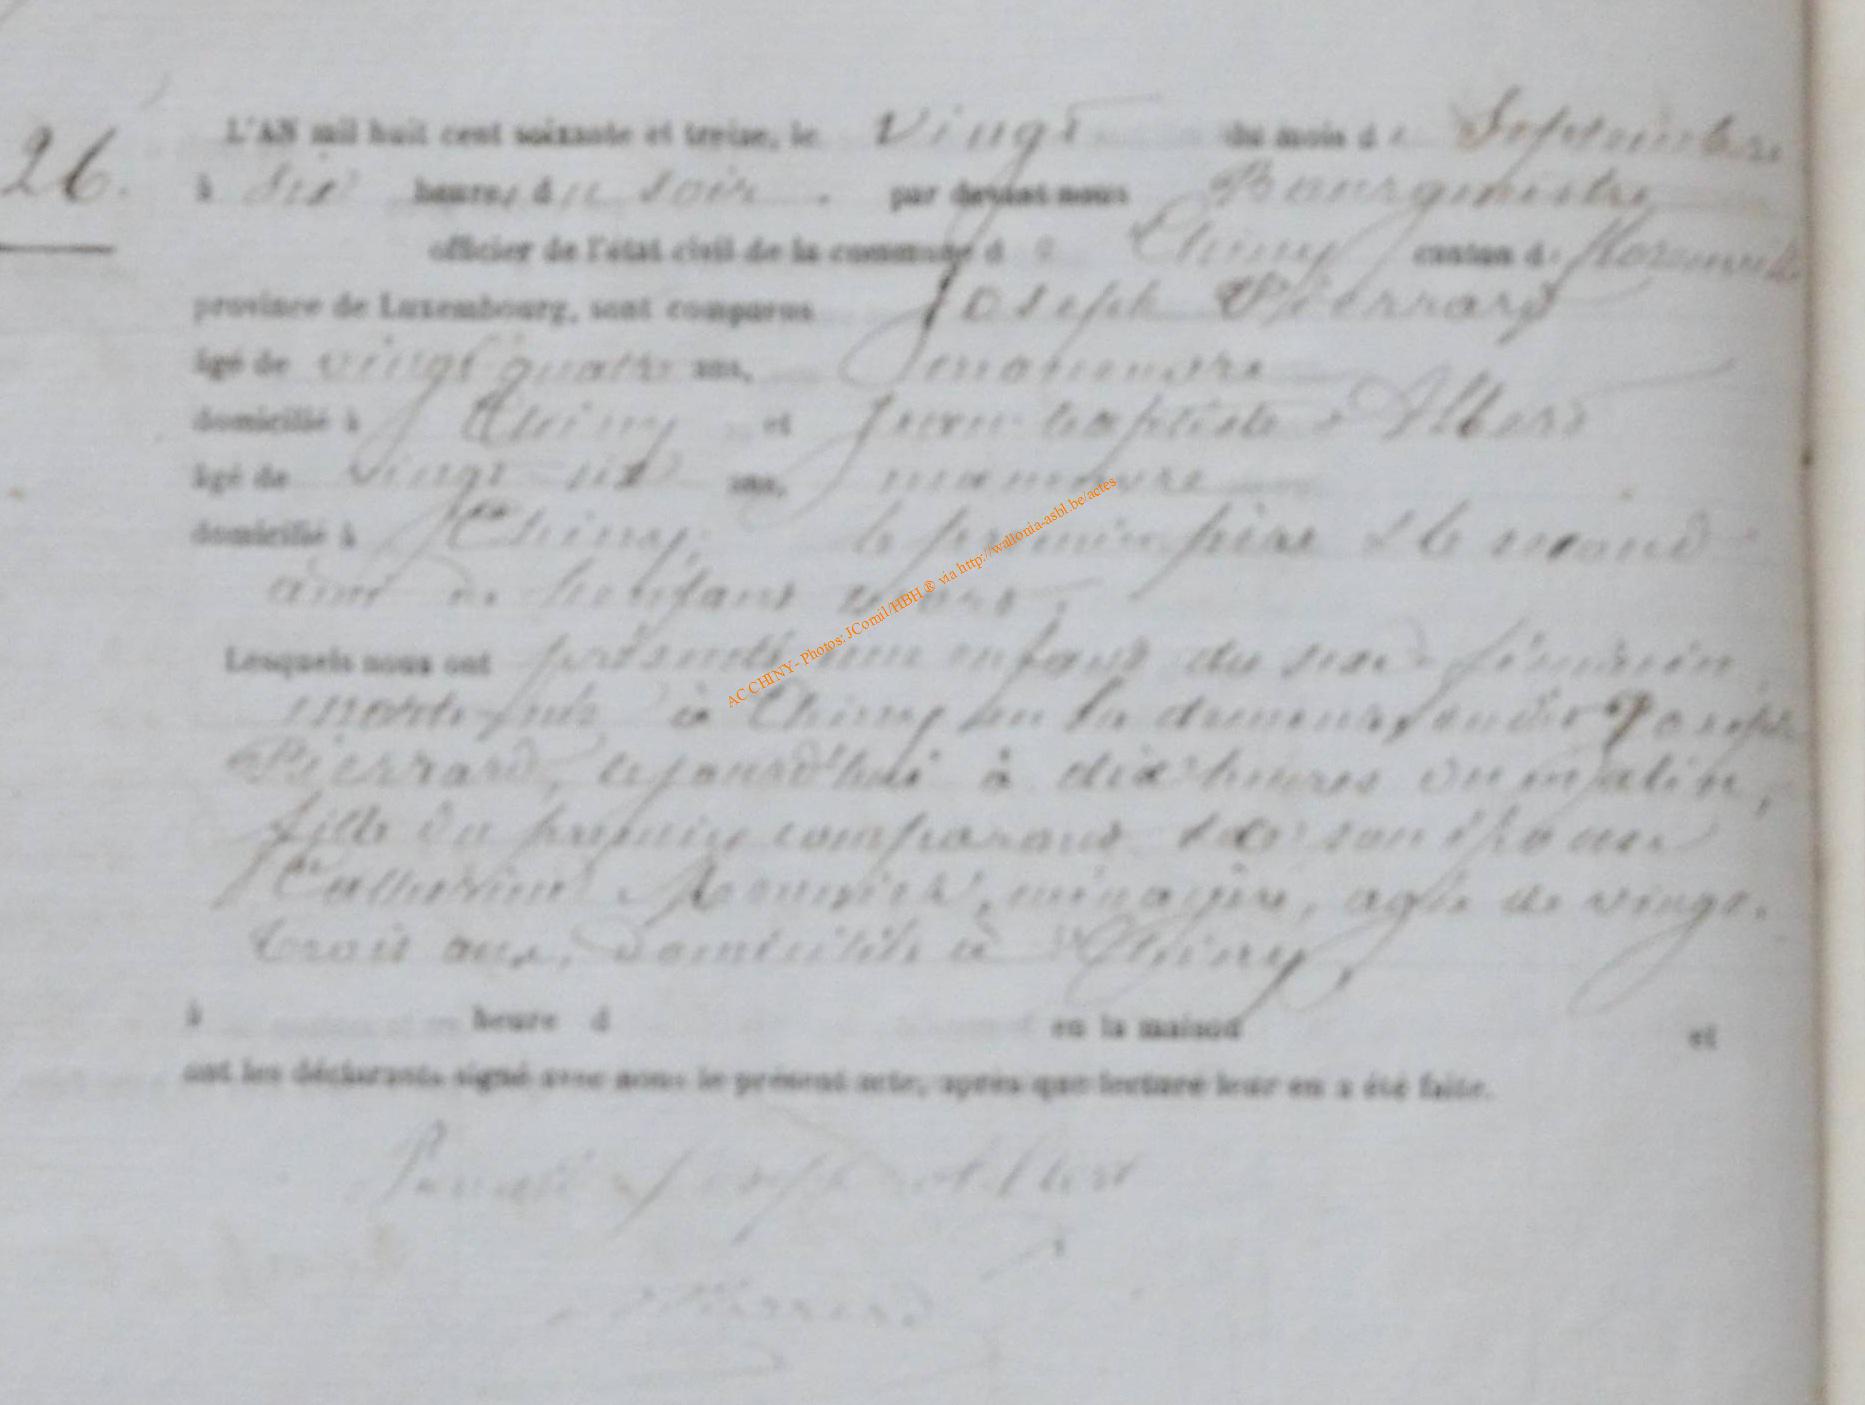 26.
L'AN mil huit cent soixante et treize, le vingt du mois de Septembre
à six heures du soir. par devant nous Bourgmestre
officier de l'état civil de la commune de Chiny canton de Florenville
province de Luxembourg, sont comparus Joseph Pierrard
âgé de vingt quatre ans,
domicilié à Chiny et Jean-baptiste Albert
âgé de vingt six ans, manœuvre
domicilié à Chiny, le premier père & le second
ami de l'enfant
Lesquels nous ont présenté un enfant du sexe féminin
mort-née à Chiny en la demeure dudit Joseph
Pierrard, cejourd'hui à dix heures du matin,
fille du premier comparant & de son épouse
Catherine Meunier, ménagère, agée de vingt-
trois ans, domiciliée à Chiny,
à heure d en la maison et
ont les déclarants signé avec nous le présent acte, après que lecture leur en a été faite.
Pierrard Joseph Albert
Pierrard
AC CHINY- Photos: JComil/HBH ® via http://wallonia-asbl.be/actes